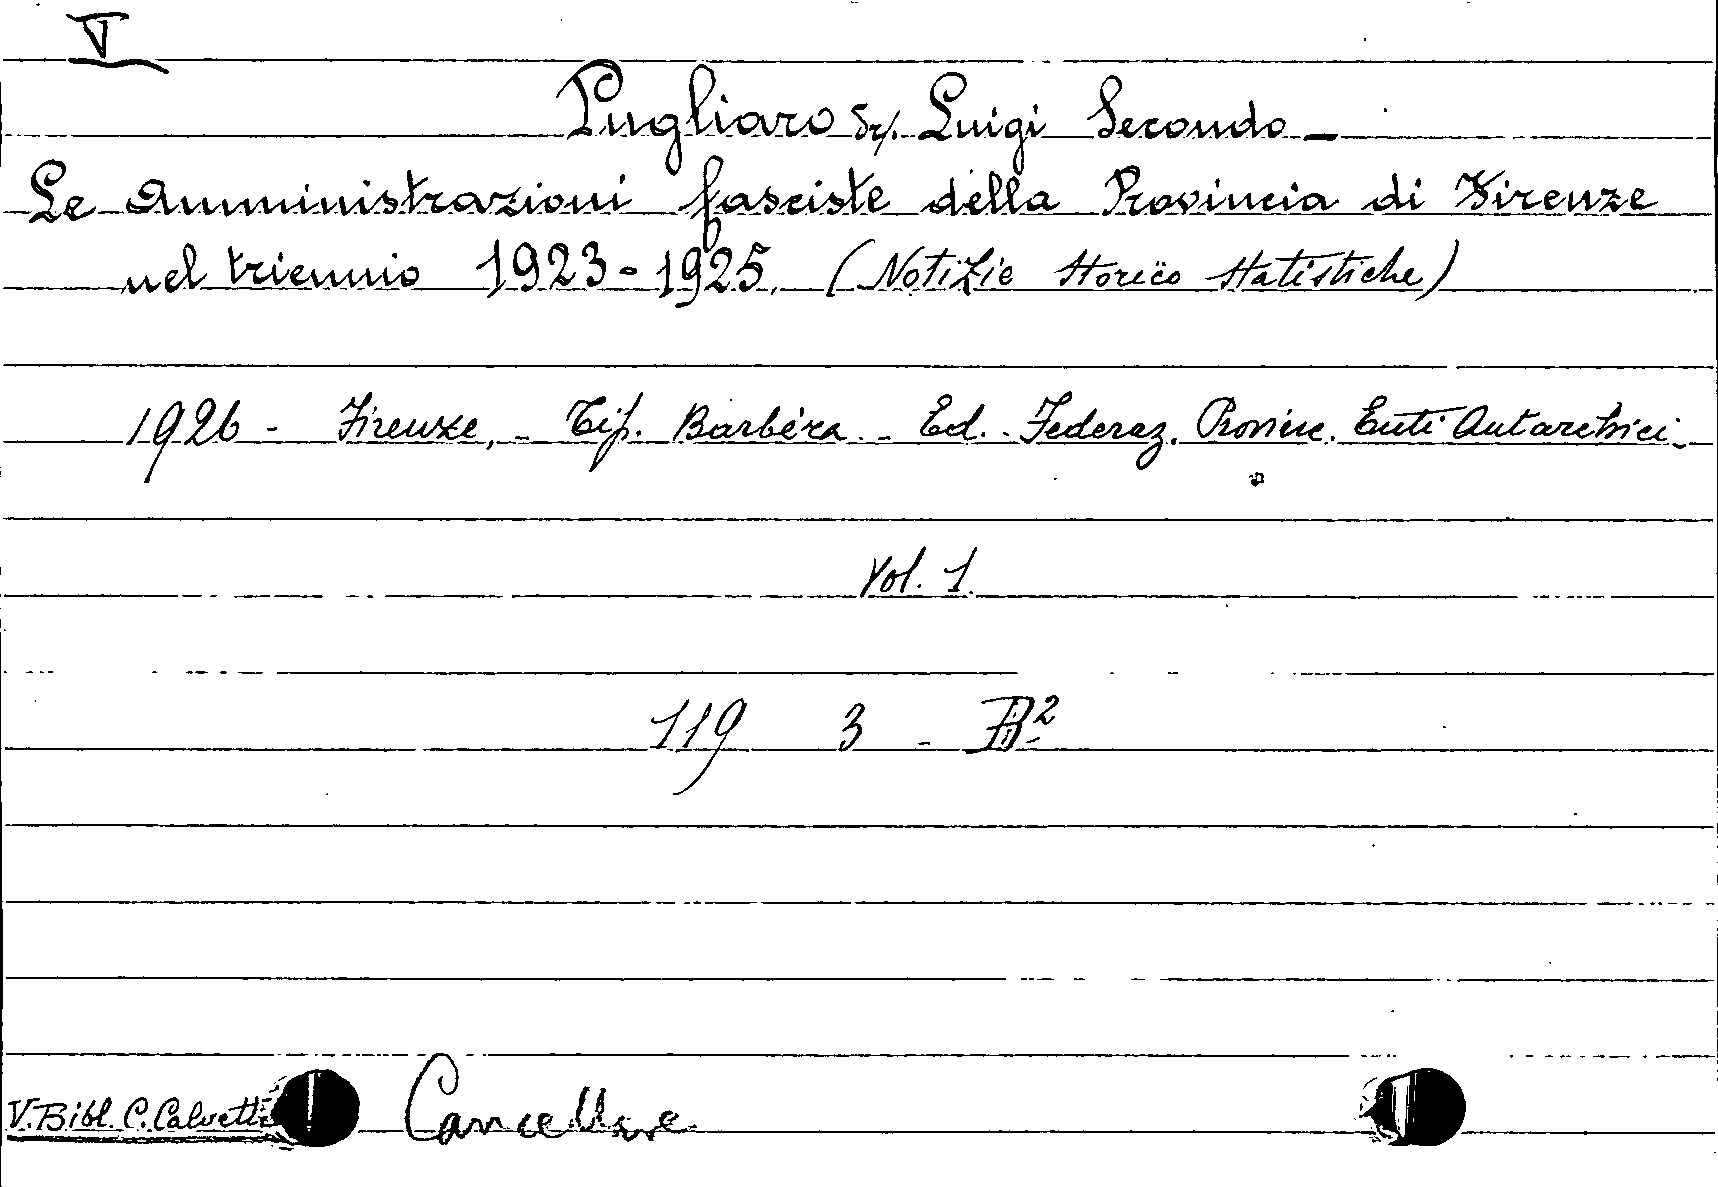 V
Pugliaro Dr. Luigi Secondo -
Le Amministrazioni fasciste della Provincia di Firenze
nel triennio 1923-1925. (Notizie storico statistiche)
1926 - Firenze, - Tip. Barbèra - Ed. Federaz. Provinc. Enti Autarchici -
Vol. 1.
119 3 - B²
V. Bibl. C. Calvetti Cancellare